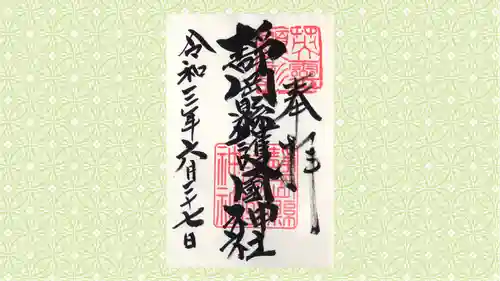 奉拝
靜岡縣護國神社
令和三年六月二十七日
英霊